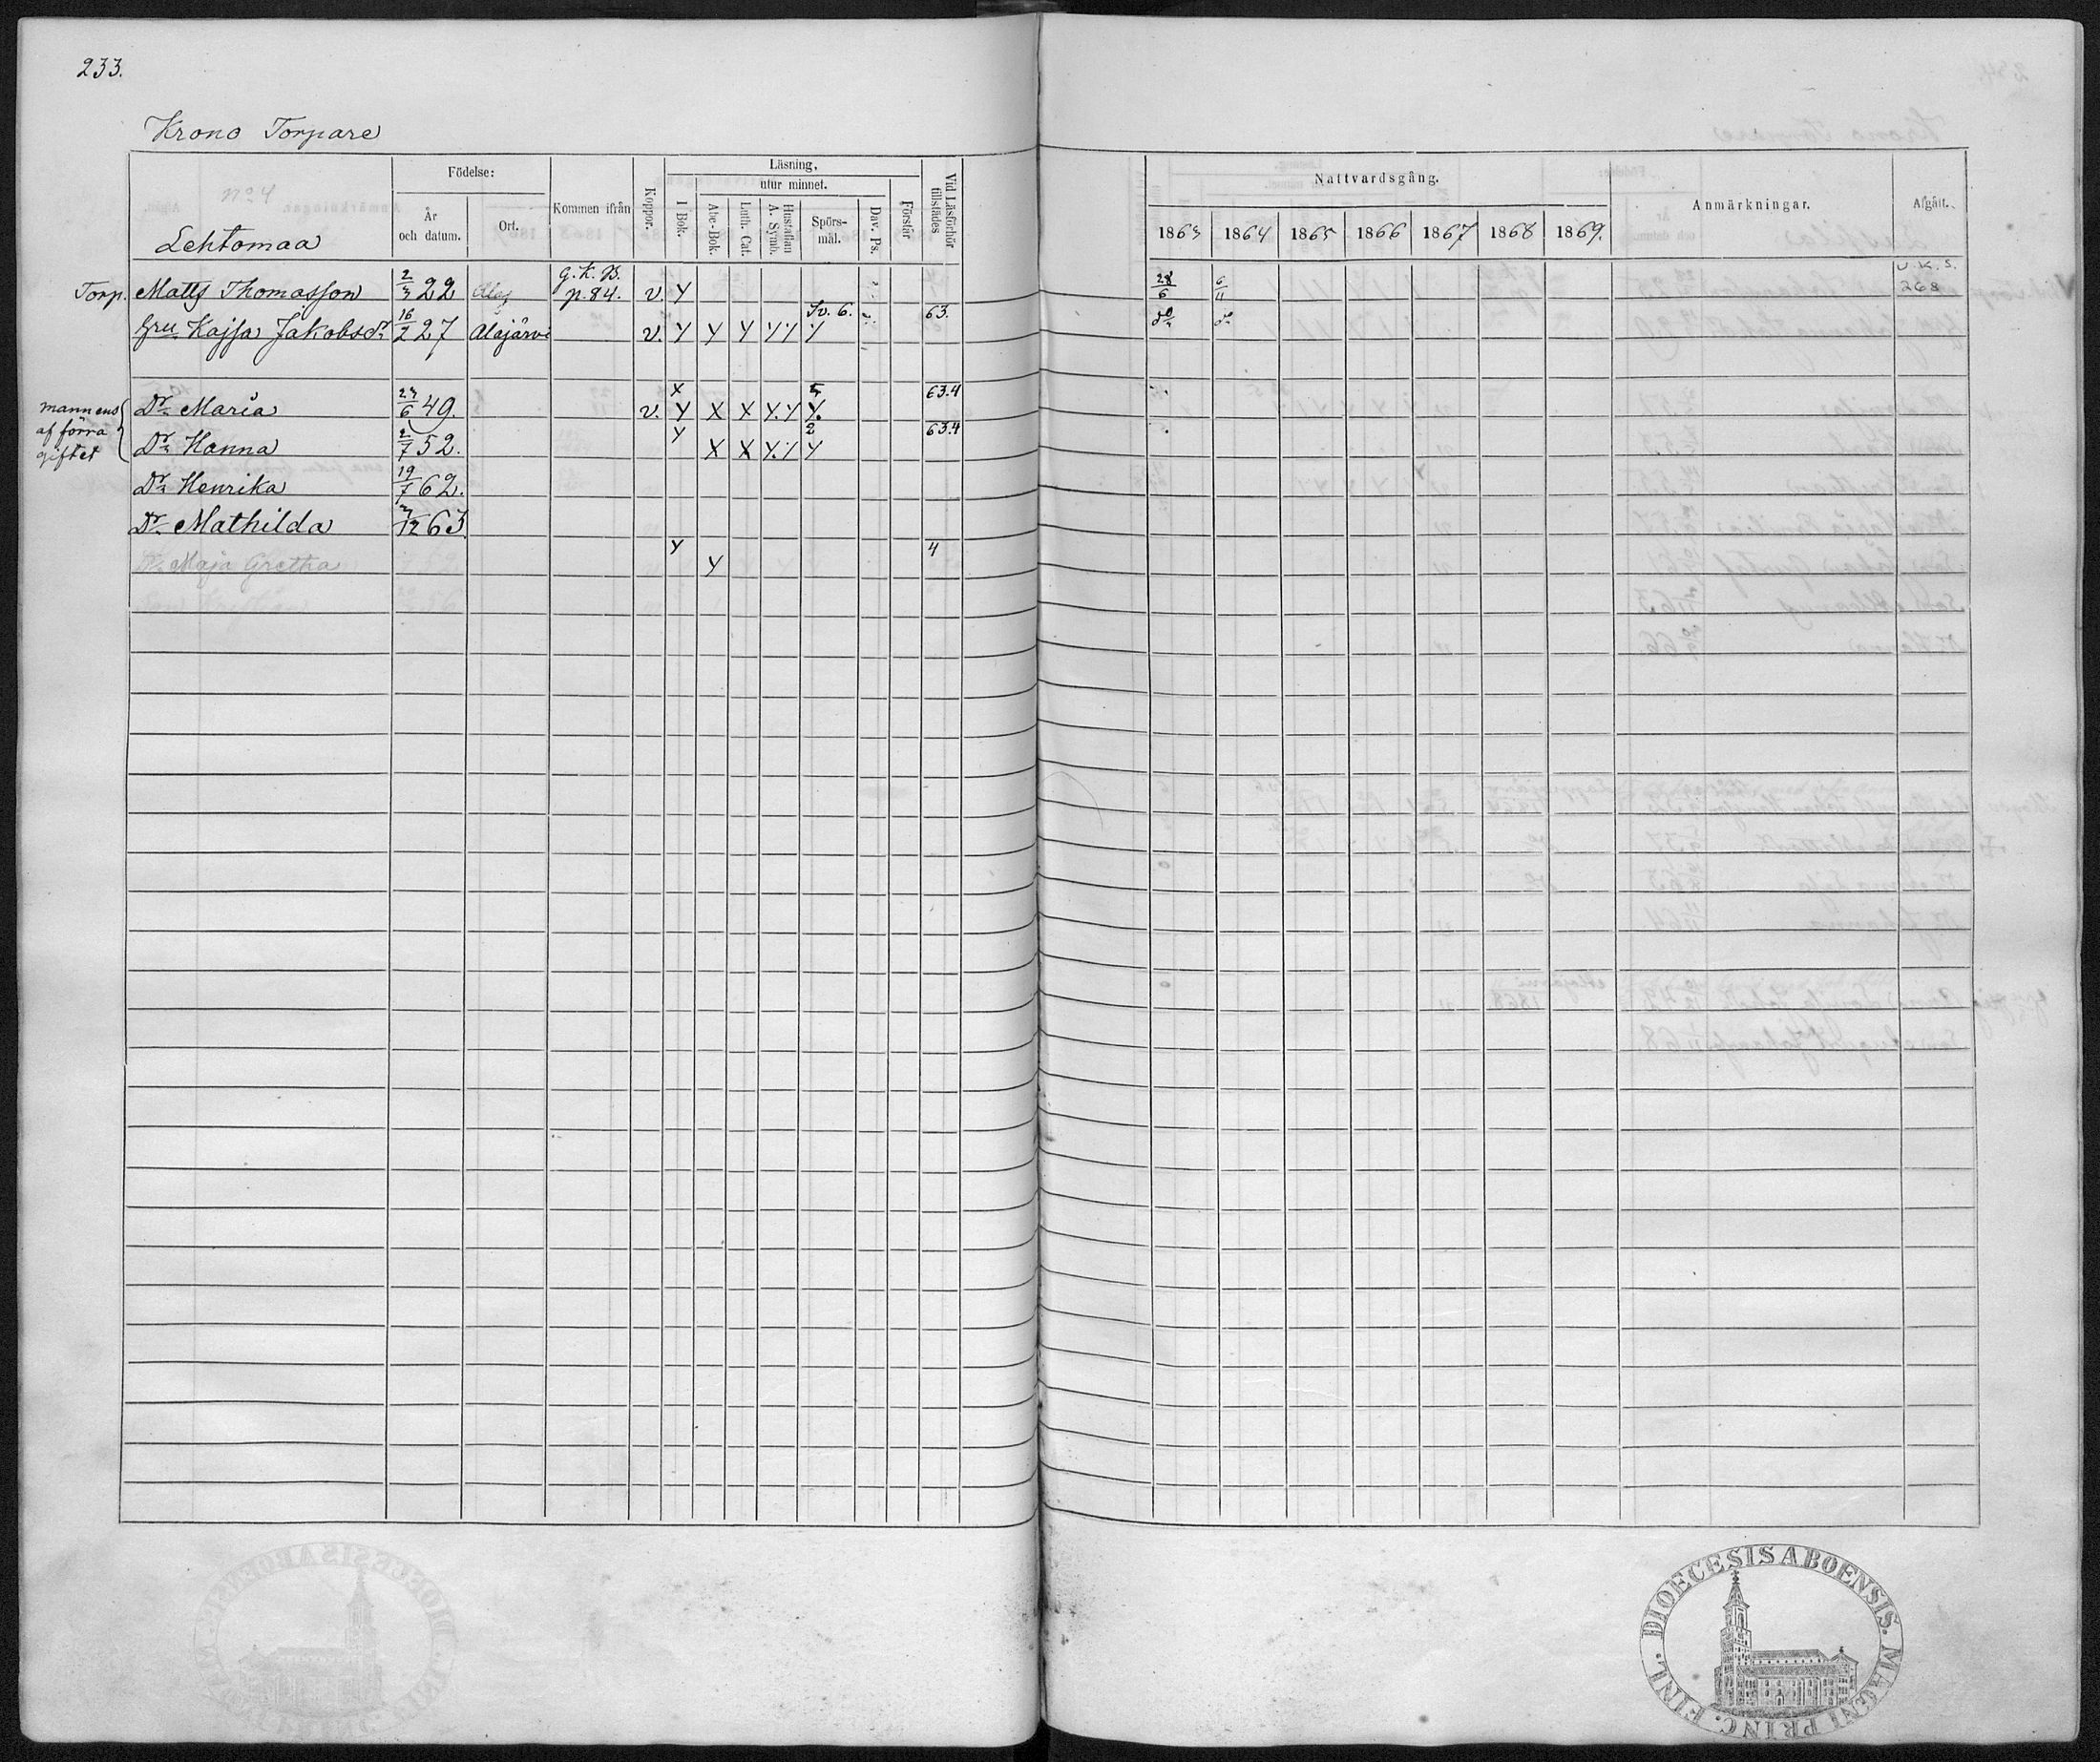 233.
Krono Torpare
Födelse: Läsning,
utur minnet.
No 4
År och datum. Ort. Kommen ifrån Koppor. I Bok. Abc-Bok. Luth. Cat. Hustaflan A. Symb. Spörsmål. Dav. Ps. Förstår Vid Läsförhör tillstädes
Lehtomaa
g. K. B.
Torp. Matts Thomasson 2/3 22 Alaj p. 84. v. Y
Sv. 6. 63.
Hru Kajsa Jakobsdr 16/2 27 Alajärvi v. Y Y Y Y.Y Y
X 5 63.4
mannens af förra giftet
Dr Maria 23/6 49. v. Y X X Y.Y Y.
Y 2 63.4
Dr Hanna 2/7 52. X X Y.Y Y
Dr Henrika 19/7 62.
Dr Mathilda /12 63.
Y 4
Dr Maja Gretha 52 Y
56
Nattvardsgång. Anmärkningar. Afgått.
1863 1864 1865 1866 1867 1868 1869.
28/6 6/11 U. K. S. 268
do do
FINL. DIOECESIS ABOENSIS. MAGNI PRINC.